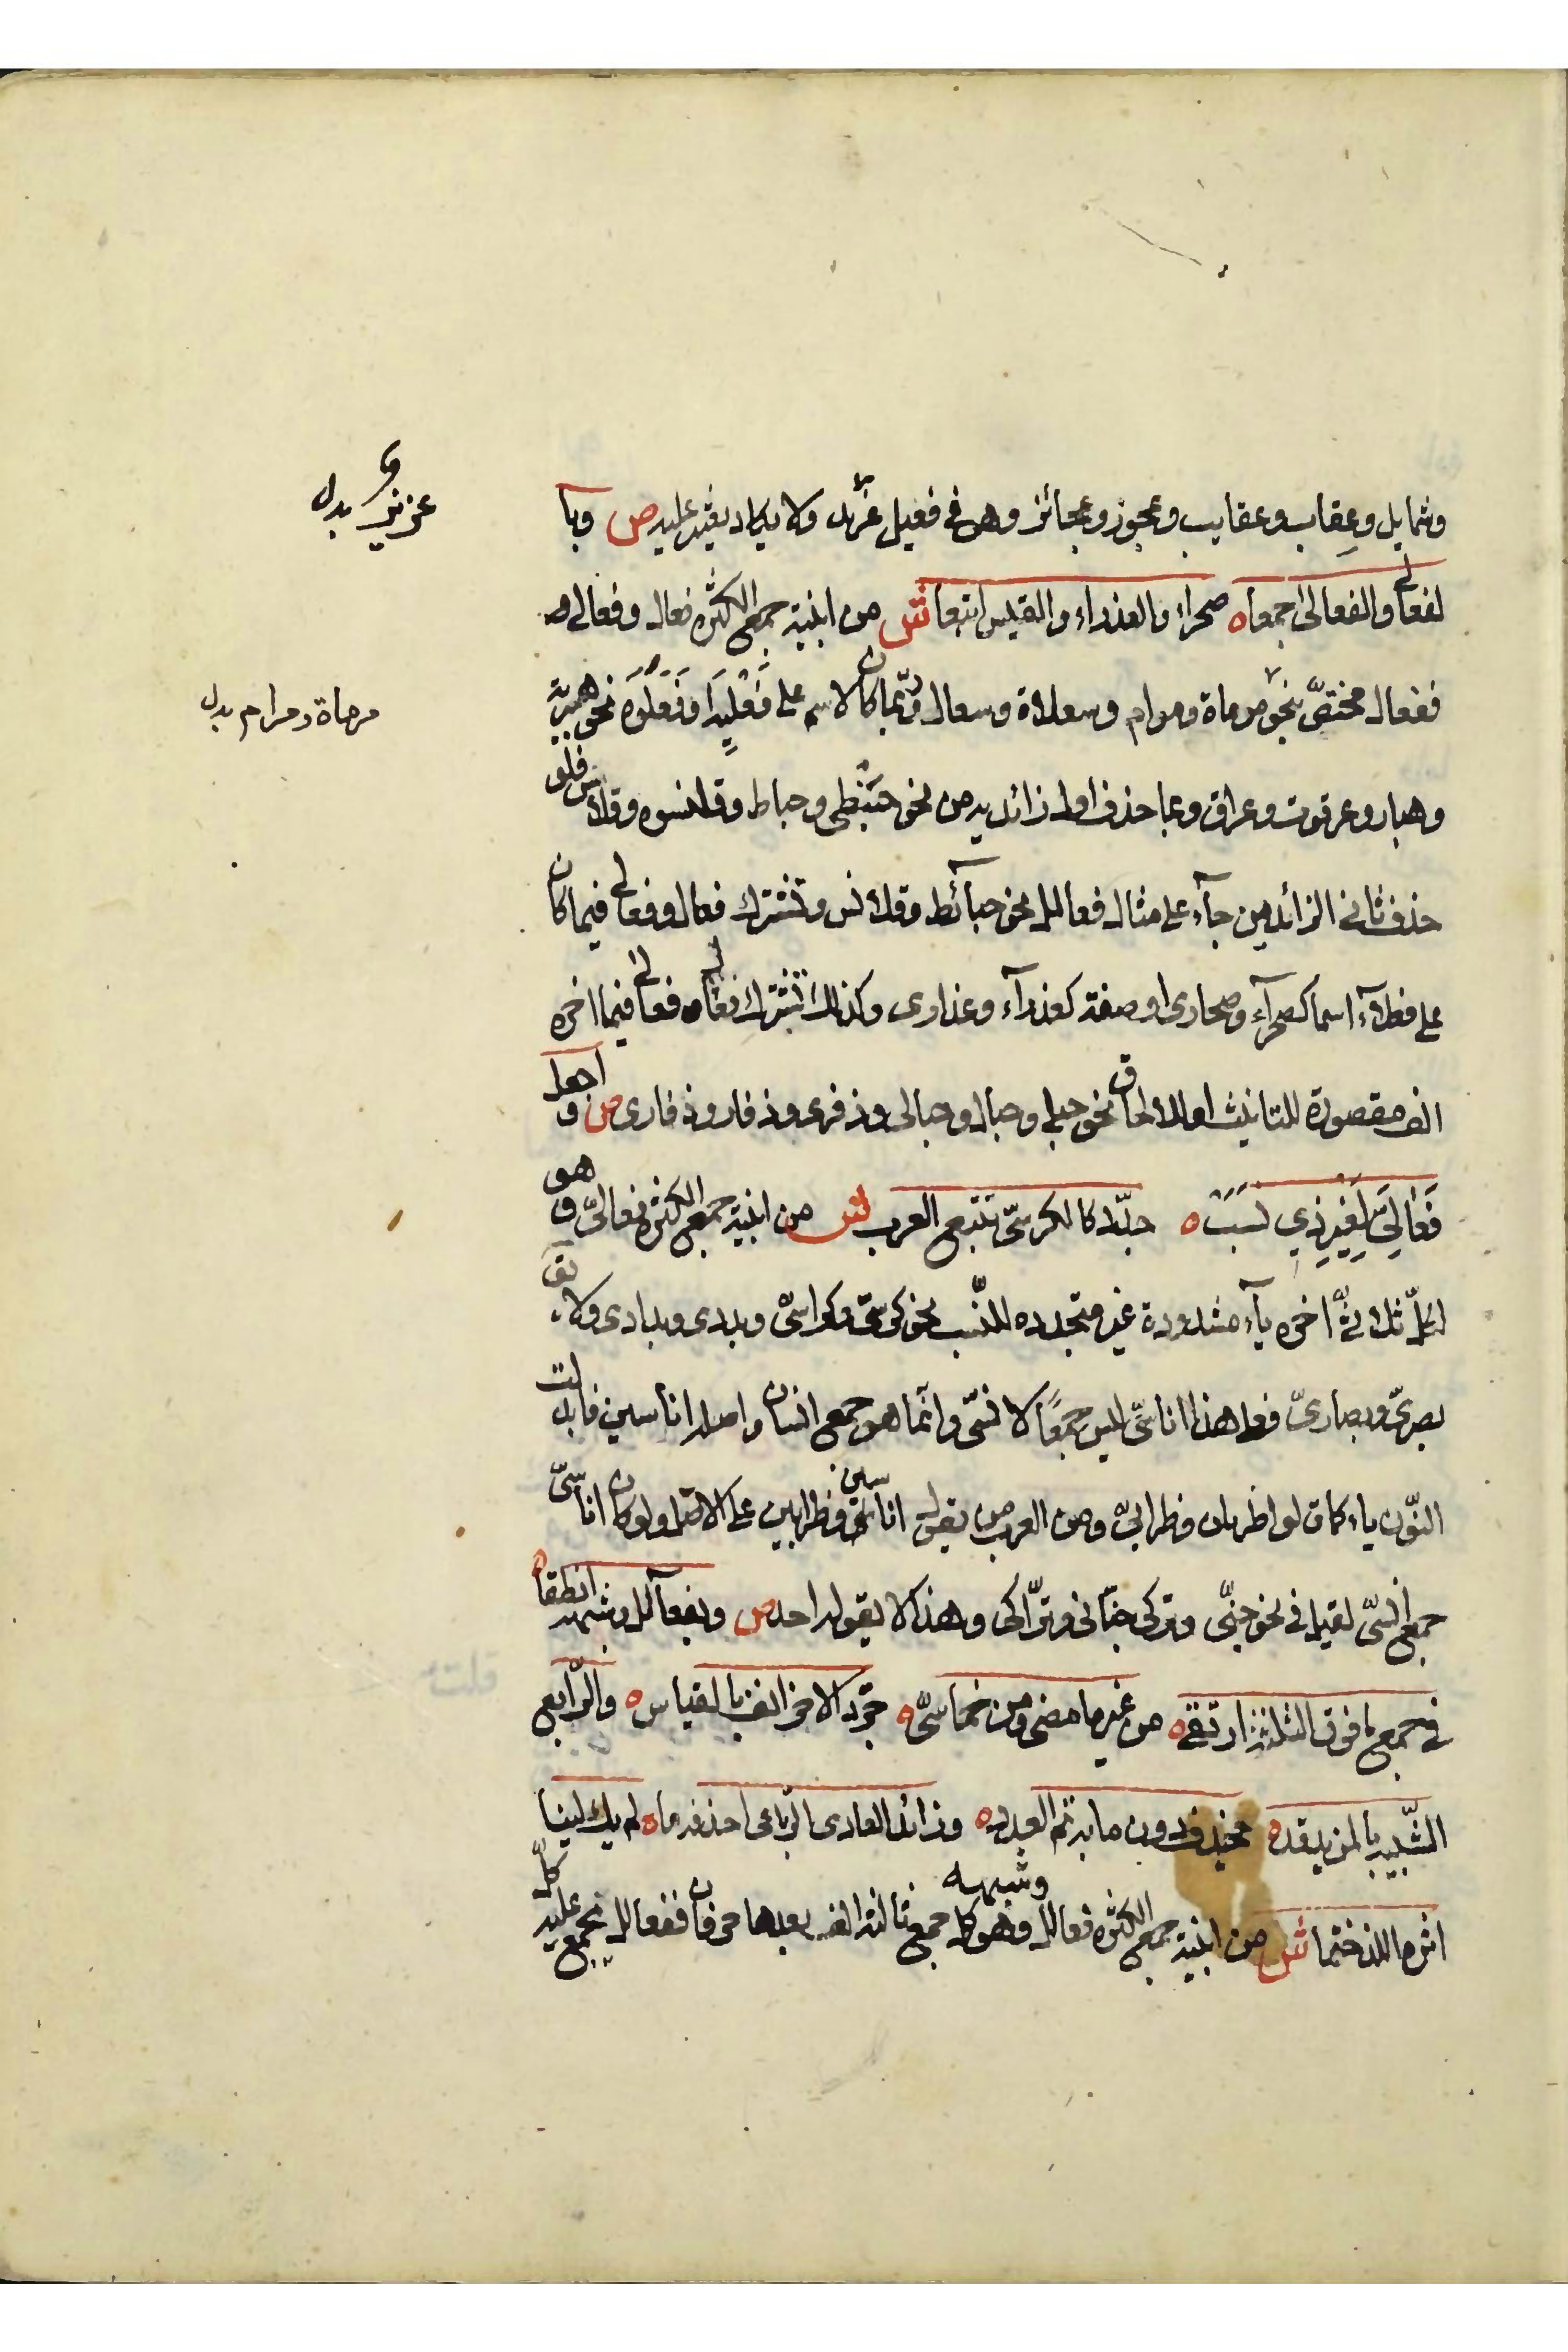 وشمايل وعِقاب وعقايب وعجوز وعجائز وهى فى فعيل عزيز ولا يكاد يعثر عليه ص وبا
عزيز بدل
لفعالى والفعالى جمعا ه صحراء والعذراء والقيس اتبعا ش من ابنية جمع الكثرة فعال وفعالى
ففعال مختص بنحو موماة وموام وسعلاة وسعال وربما كان الاسم على فَعْلِيَة او فَعْلُوَة نحو هبرية
مرماة ومرام بدل
وهبار وعرقوت وعراق وبما حذف اول زائديه من نحو حَبَنْطى وحباط وقلنسوه وقلاس فلو
حذف ثانى الزائدين جآء على مثال فعالل نحو حبآئط وقلانس وتشترك فعال وفعالى فيما كان
على فعلآء اسما كصحرآء وصحارى او صفة كعذرآء وعذارى وكذلك تشترك فعال وفعالى فيما اخره
الف مقصورة للتانيث او للالحاق نحو حبلى وحبال وحبالى وذفرى وذفار وذفارى ص واجعل
فَعَالِىَّ لِغَيْرِ ذِي نَسَبْ ه جدّد كالكرسىّ تتبع العرب ش من ابنية جمع الكثرة فعالىّ وهو
لكلّ ثلاثىّ اخره يآء مشدودة غير متجدده للنّسب نحو كرسىّ وكراسىّ وبردى وبرادى ولا يق
بصرىّ وبصارىّ فعلى هذا اناسّى ليس جمعًا لانسّى وانّما هو جمع انسان واصله اناسين فابدلت
النّون ياء كما قالوا ظربان وظرابىّ ومن العرب من يقول اناسين وظرابين على الاصل ولو كان اناسىّ
جمع انسىّ لقيل فى نحو جنّى وتركى جنّانى وترّاكى وهذا لا يقوله احد ص وبفعآلل وشبهه انطقا ه
فى جمع ما فوق الثلاثة ارتقى ه من غير ما مضى ومن خماسىّ ه جرّد الاخر انف بالقياس ه والرّابع
الشّبيه بالمزيد قد ه يحذف دون ما به تم العدد ه وزائد العادى الرّباعى احذفه ما ه لم يك لينا
اثره اللذ ختما ش من ابنية جمع الكثره فعالل وشبهه وهو كل جمع ثالثه الف بعدها حرفان ففعالل يجمع عليه كلّ